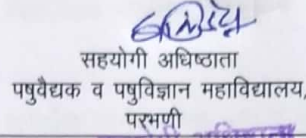 सहयोगी अधिष्ठाता
पषुवैद्यक व पषुविज्ञान महाविद्यालय,
परभणी